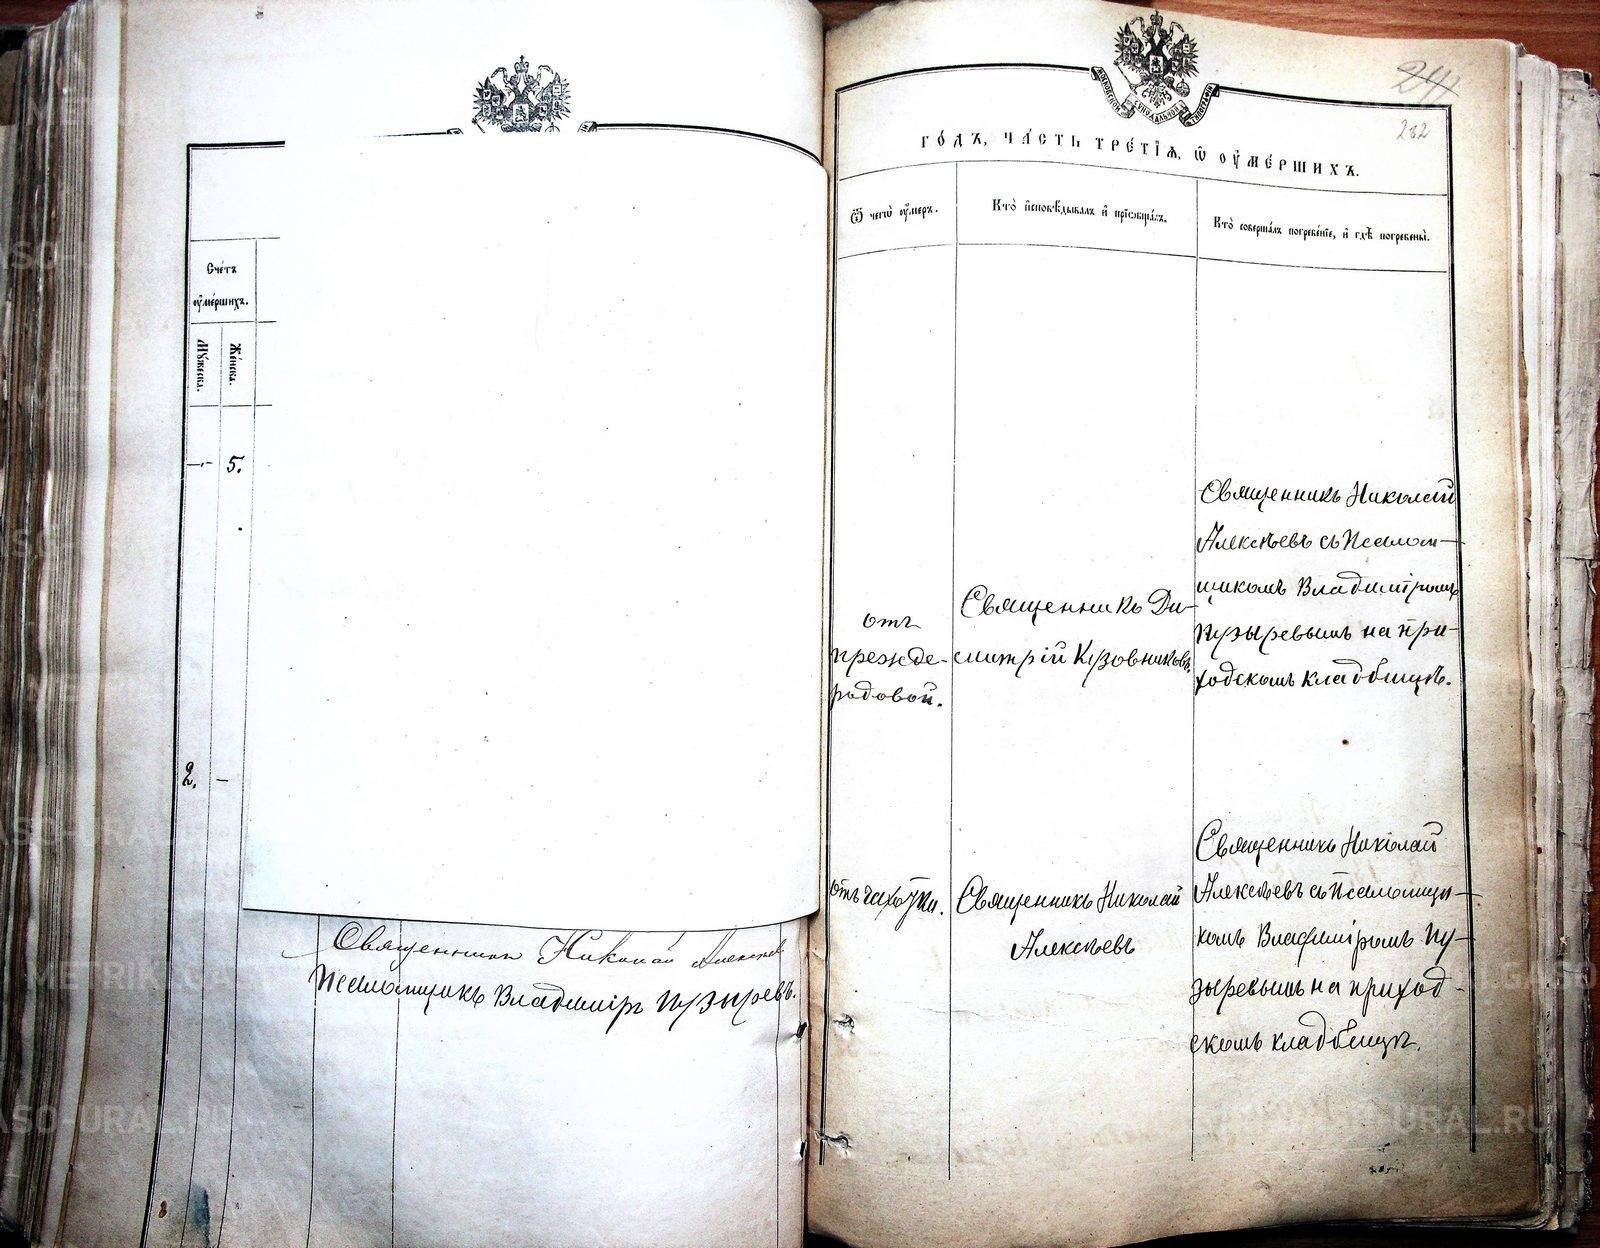 Счетъ
оумершихъ.
Мужеска.
Женска.
5.
2.
Священникъ Николай Алексѣевъ
Псаломщикъ Владиміръ Пузыревъ.
МОСКОВСКОЙ СѴНОДАЛЬНОЙ ТѴПОГРАФІИ
241
282
годъ, часть третїѧ, ѡ оумершихъ.
Ѿ чегѡ оумеръ.
Кто исповѣдывалъ и прїобщалъ.
Кто совершалъ погребенїе, и гдѣ погребены.
отъ
прежде-
родовой.
Священникъ Ди-
митрій Кузовниковъ.
Священникъ Николай
Алексѣевъ съ Псалом-
щикомъ Владиміромъ
Пузыревымъ на при-
ходскомъ кладбищѣ.
отъ чахотки.
Священникъ Николай
Алексѣевъ
Священникъ Николай
Алексѣевъ съ Псаломщи-
комъ Владиміромъ Пу-
зыревымъ на приход-
скомъ кладбищѣ.